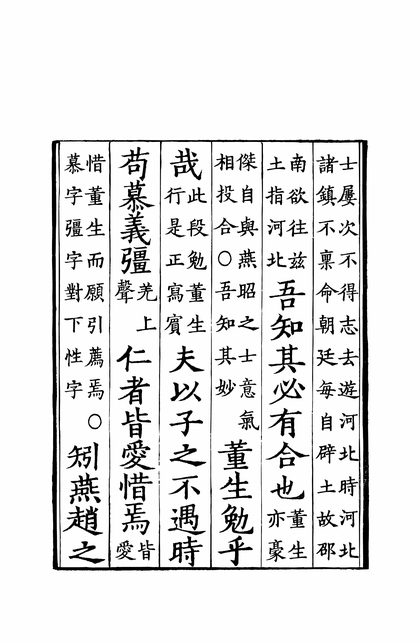 士屢次不得志去遊河北時河北
諸鎮不稟命朝廷每自辟土故邵
南欲往茲
土指河北
吾知其必有合也
董生
亦豪
傑自與燕昭之士意氣
相投合○吾知其妙
董生勉乎
哉
此段勉董生
行是正寫賓
夫以子之不遇時
苟慕義彊
羌上
聲
仁者皆愛惜焉
皆
愛
惜董生而願引薦焉○
慕字彊字對下性字
矧燕趙之